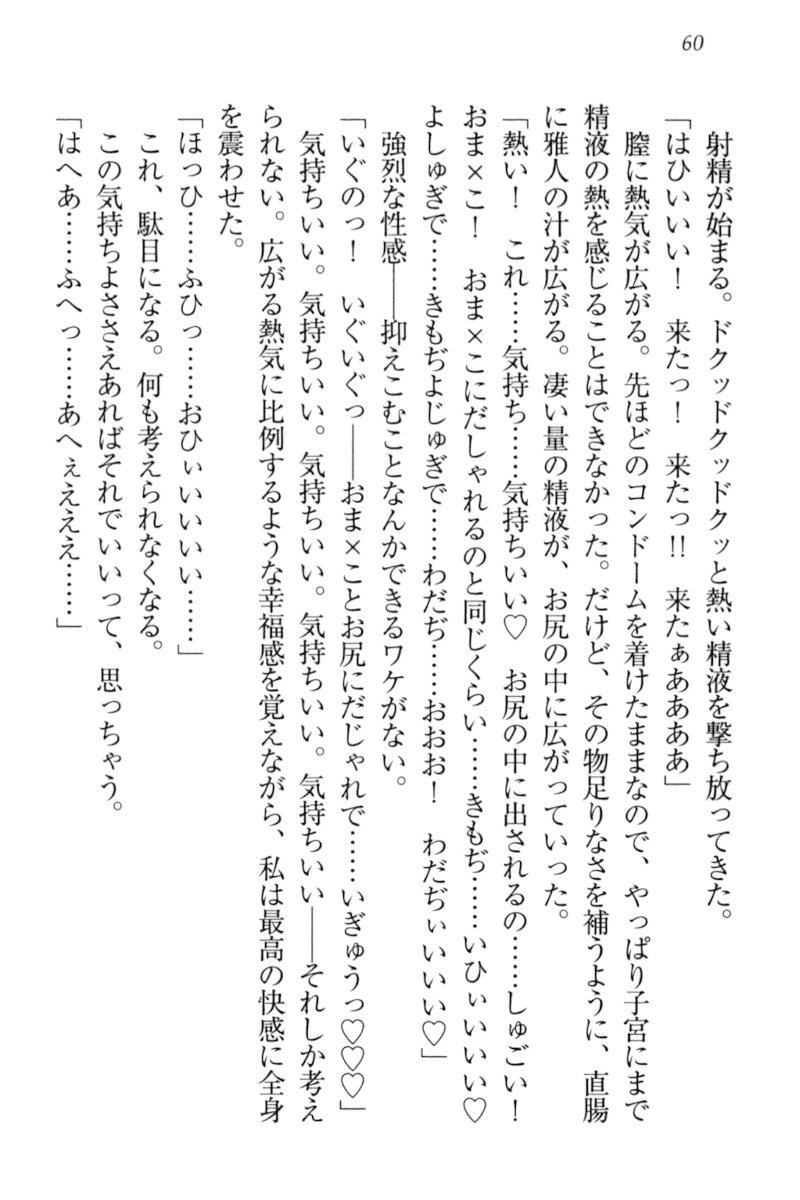 60
射精が始まる。ドクッドクッドクッと熱い精液を撃ち放ってきた。
「はひいいい！　来たっ！　来たっ!!　来たぁああああ」
膣に熱気が広がる。先ほどのコンドームを着けたままなので、やっぱり子宮にまで
精液の熱を感じることはできなかった。だけど、その物足りなさを補うように、直腸
に雅人の汁が広がる。凄い量の精液が、お尻の中に広がっていった。
「熱い！　これ……気持ち……気持ちいい♡　お尻の中に出されるの……しゅごい！
おま×こ！　おま×こにだしゃれるのと同じくらい……きもぢ……いひぃいいいい♡
よしゅぎで……きもぢよじゅぎで……わだぢ……おおお！　わだぢぃいいい♡」
強烈な性感――抑えこむことなんかできるワケがない。
「いぐのっ！　いぐいぐっ――おま×ことお尻にだじゃれで……いぎゅうっ♡♡♡」
気持ちいい。気持ちいい。気持ちいい。気持ちいい。気持ちいい――それしか考え
られない。広がる熱気に比例するような幸福感を覚えながら、私は最高の快感に全身
を震わせた。
「ほっひ……ふひっ……おひぃいいいい……」
これ、駄目になる。何も考えられなくなる。
この気持ちよささえあればそれでいいって、思っちゃう。
「はへあ……ふへっ……あへぇえええ……」